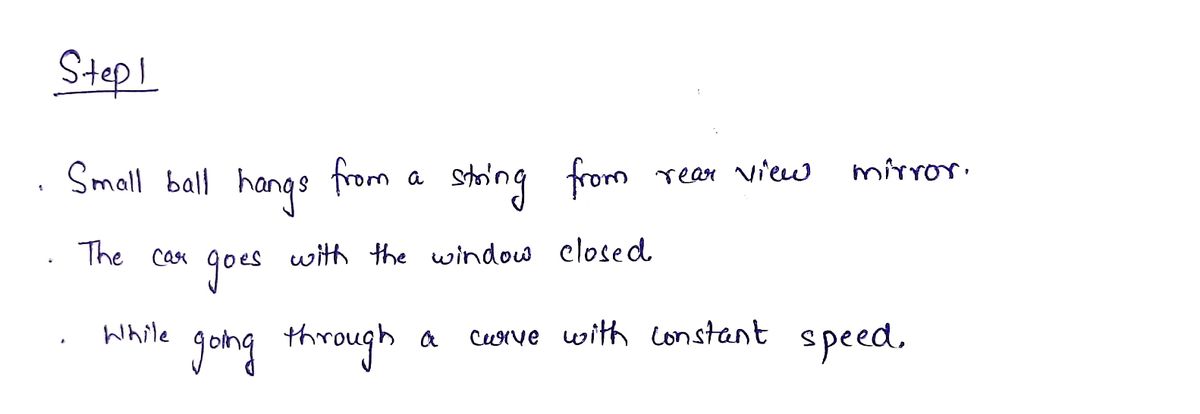 Step 1
. Small ball hangs from a string from rear view mirror.
. The car goes with the window closed.
. While going through a curve with constant speed.